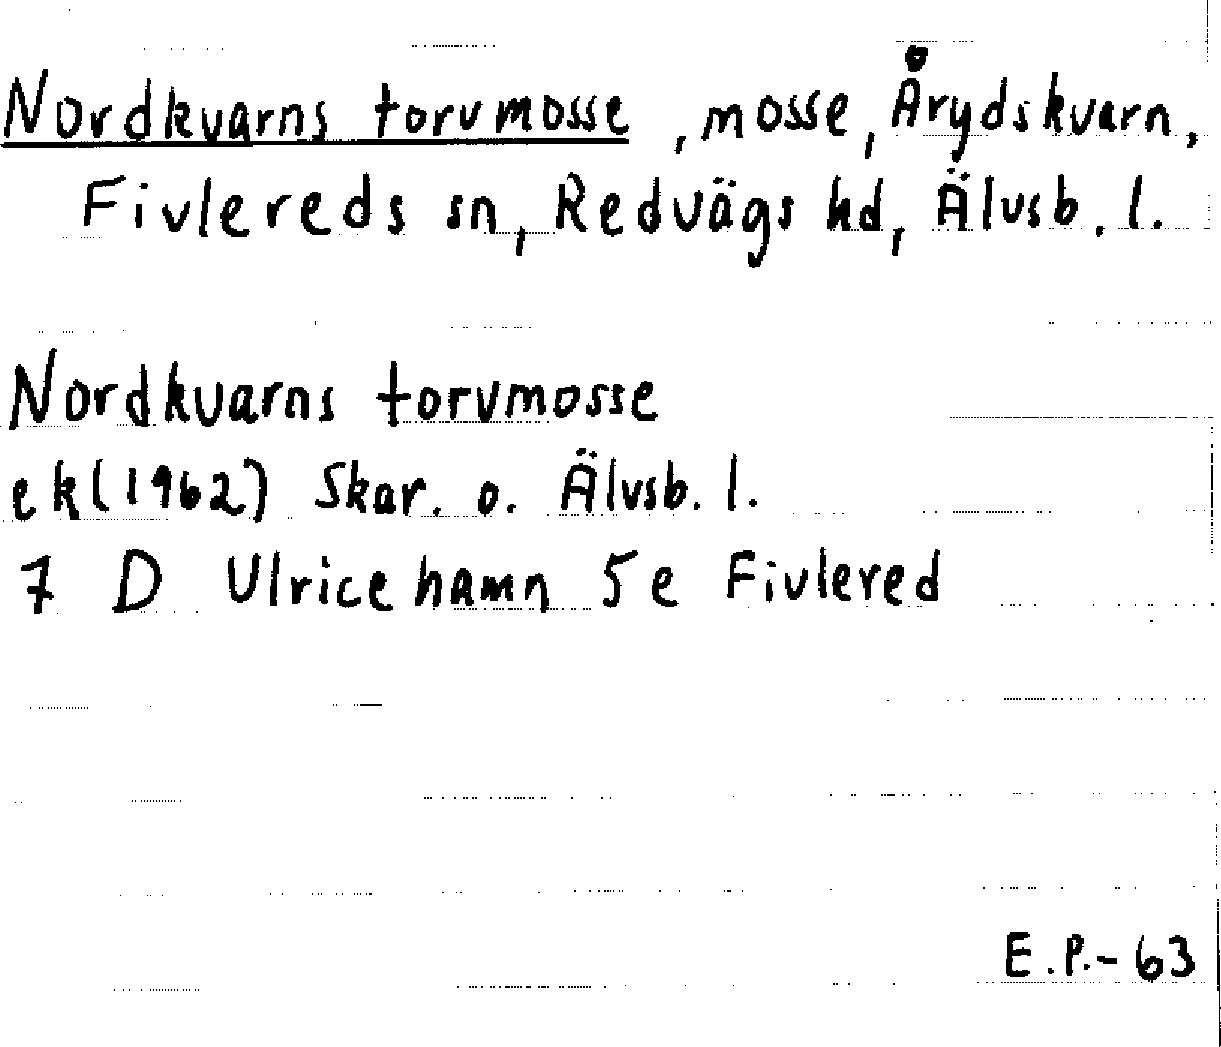 Nordkvarns torvmosse, mosse, Årydskvarn,
Fivlereds sn, Redvägs hd, Älvsb. l.
Nordkvarns torvmosse
ek(1962) Skar. o. Älvsb. l.
7 D Ulricehamn 5e Fivlered
E.P.-63